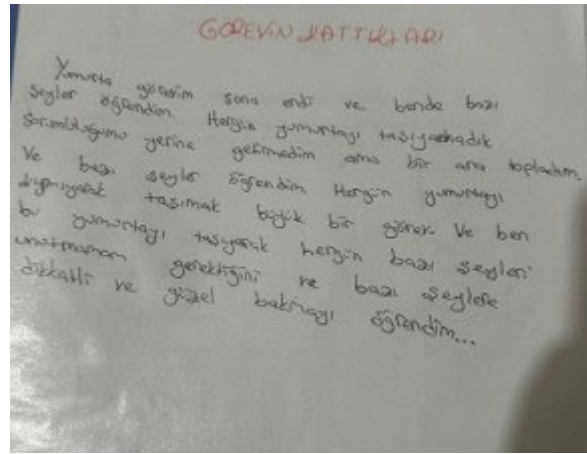 GÖREVİN KATTIKLARI
Yumurta görevim sona erdi ve bende bazı
şeyler öğrendim. Hergün yumurtayı
sorumluluğumu yerine getirmedim ama bir ara topladım.
Ve bazı şeyler öğrendim Hergün yumurtayı
taşımak büyük bir görev. Ve ben
bu yumurtayı taşıyarak hergün bazı şeyleri
unutmamam gerektiğini ve bazı şeylere
dikkatli ve güzel bakmayı öğrendim...